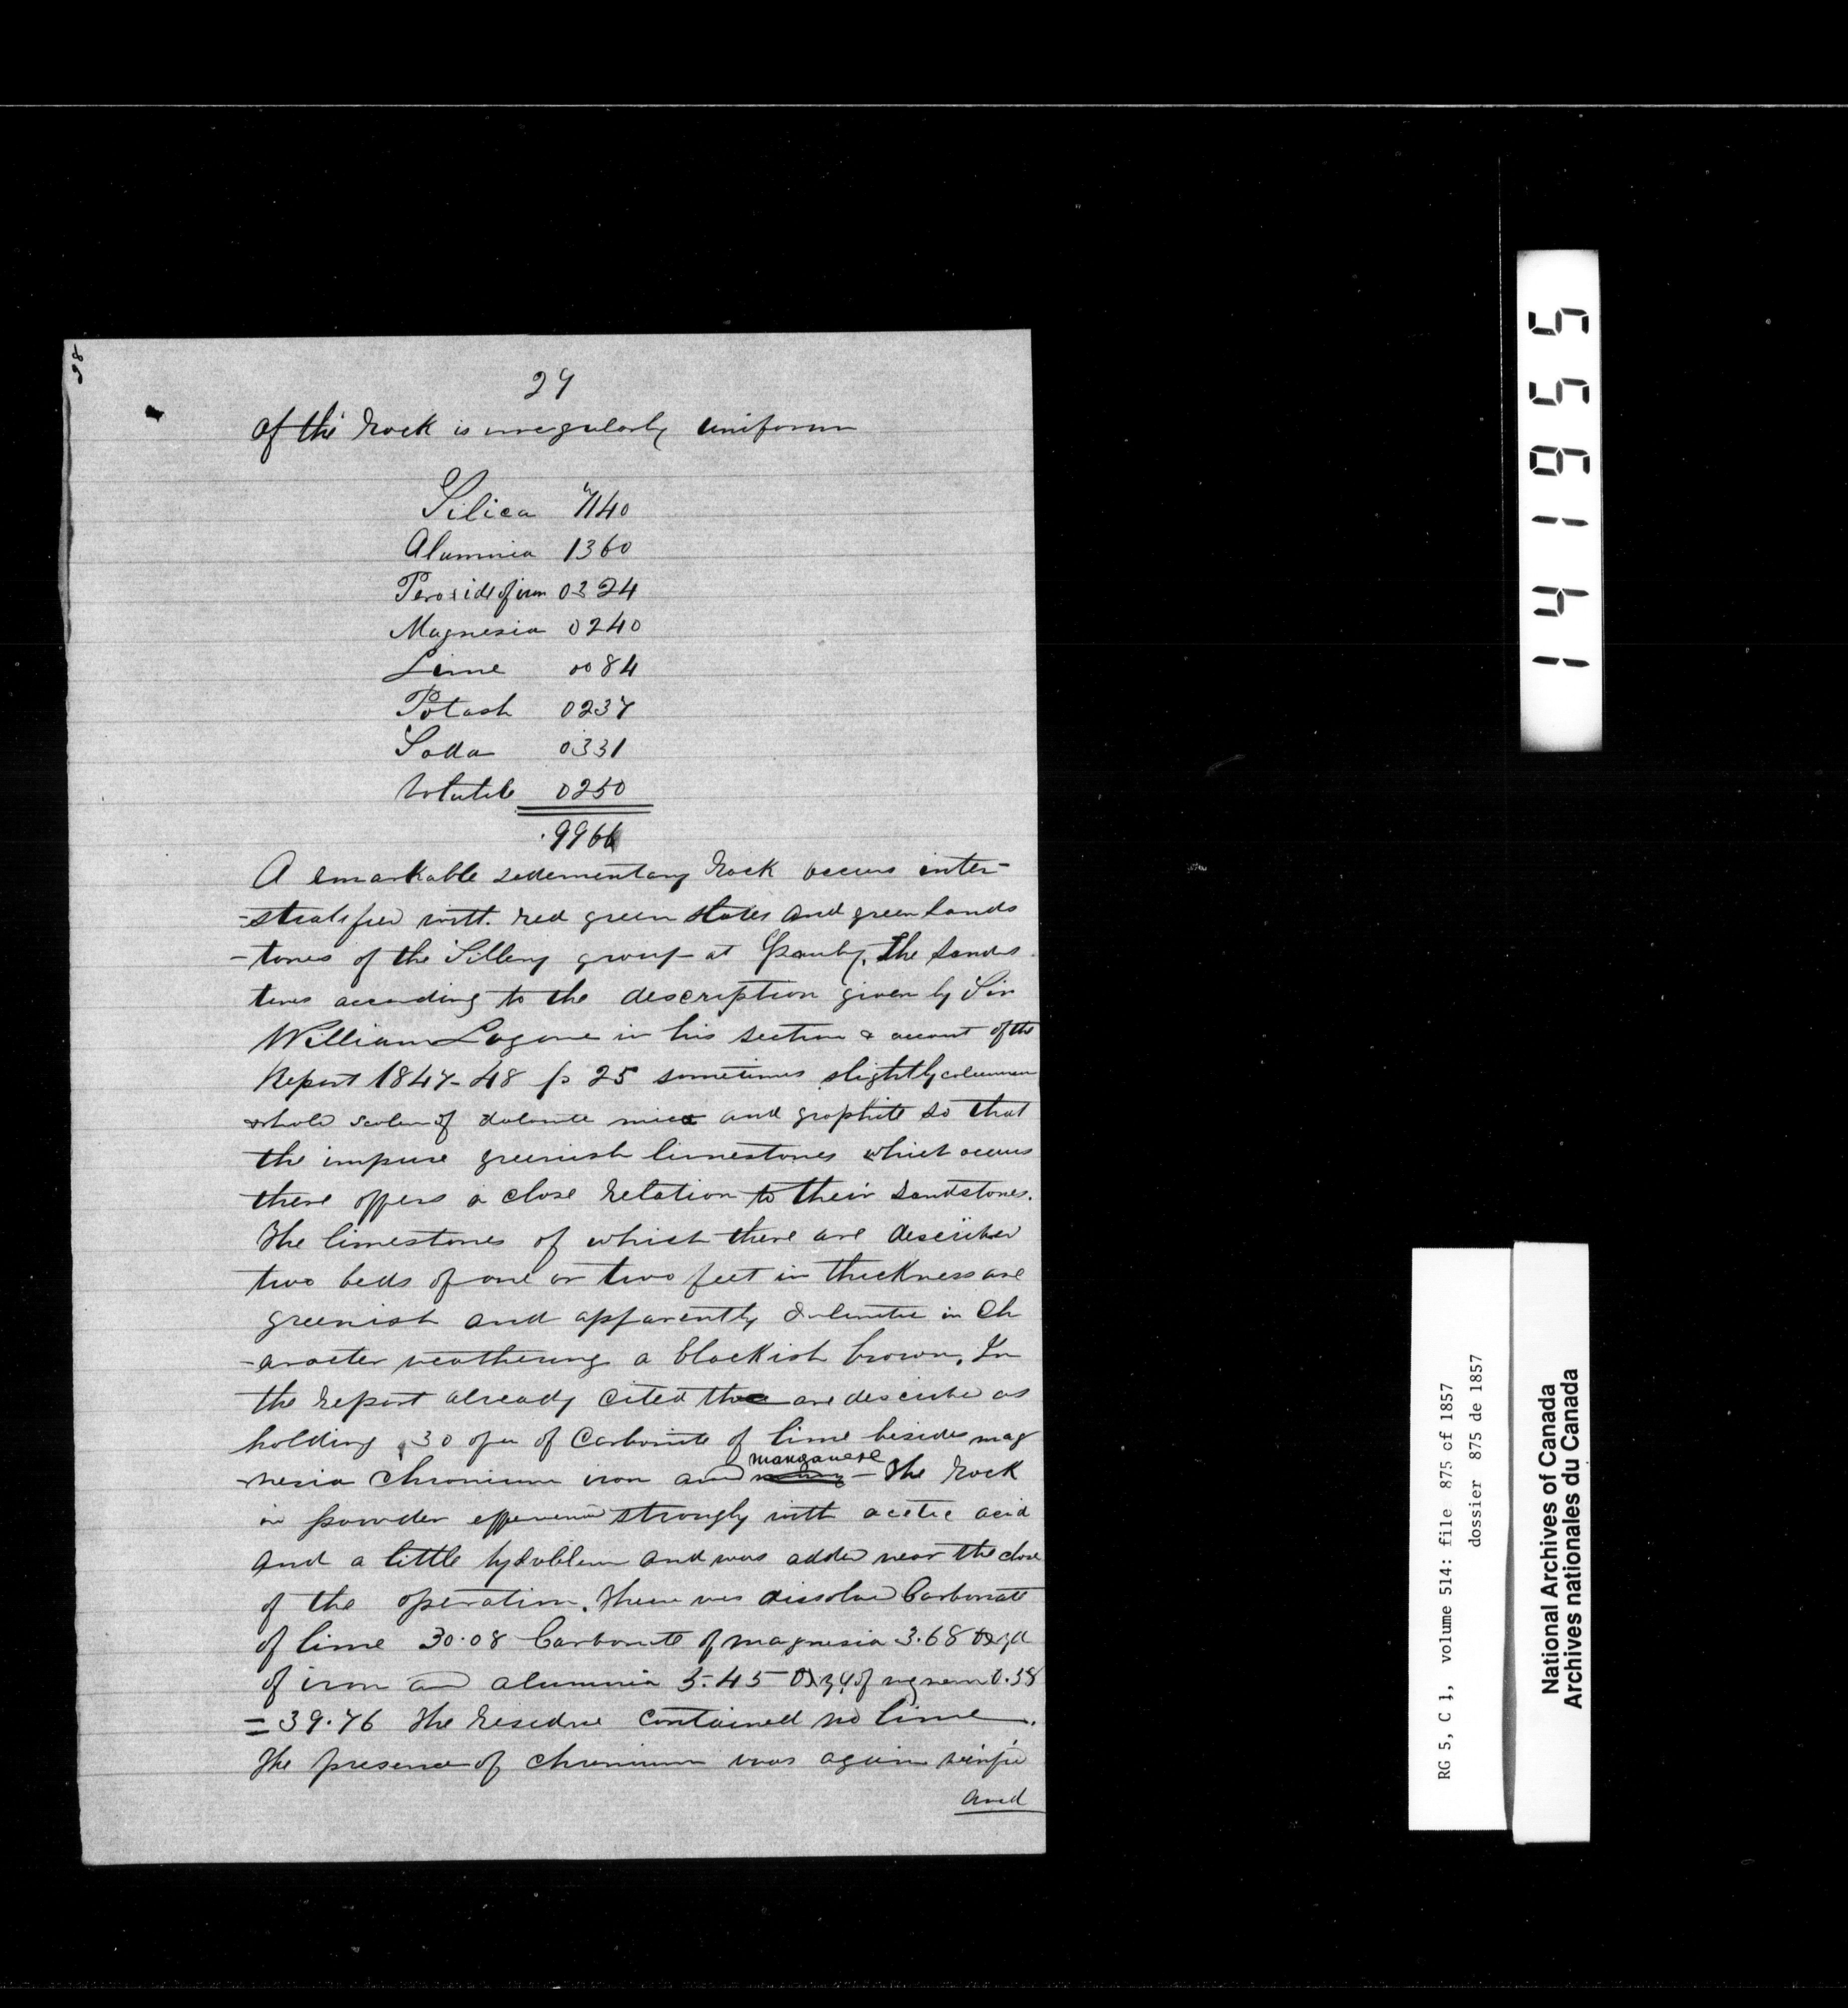 28
27
of the rock is irregularly uniform
Silica 7140
Alumnia 1360
Peroxide of iron 0324
Magnesia 0240
Lime 0084
Potash 0237
Soda 0331
Volatile 0250
.9966
A emarkable sedementary rock occurs inter-
-stratified with red green slates and green sands
-tones of the Sillery group at Granby. The sands
tones according to the description given by Sir
William Logane in his section & account of the
Report 1847-48 p 25 sometimes slightly
whole scales of and graphite so that
the impure greenish limestones which occurs
there offers a close relation to their sandstones.
The limestones of which there are describer
two beds of one or two feet in thickness are
greenish and apparently in Ch
-aracter weathering a blackish brown, In
the report already cited the are describe as
holding 30 of Carbonite of lime besides mag
-nesia Chromium iron and manganese - The rock
in powder strongly with acetic acid
and a little and was added near the close
of the operation. There was dissolved Carbonate
of lime 30.08 Carbonate of magnesia 3.68 Oxyd
of iron and alumina 5.45 of 0.38
= 39.76 The residue contained no lime.
The presence of chromium was again
and
141955
RG 5, C 1, volume 514: file 875 of 1857
dossier 875 de 1857
National Archives of Canada
Archives nationales du Canada